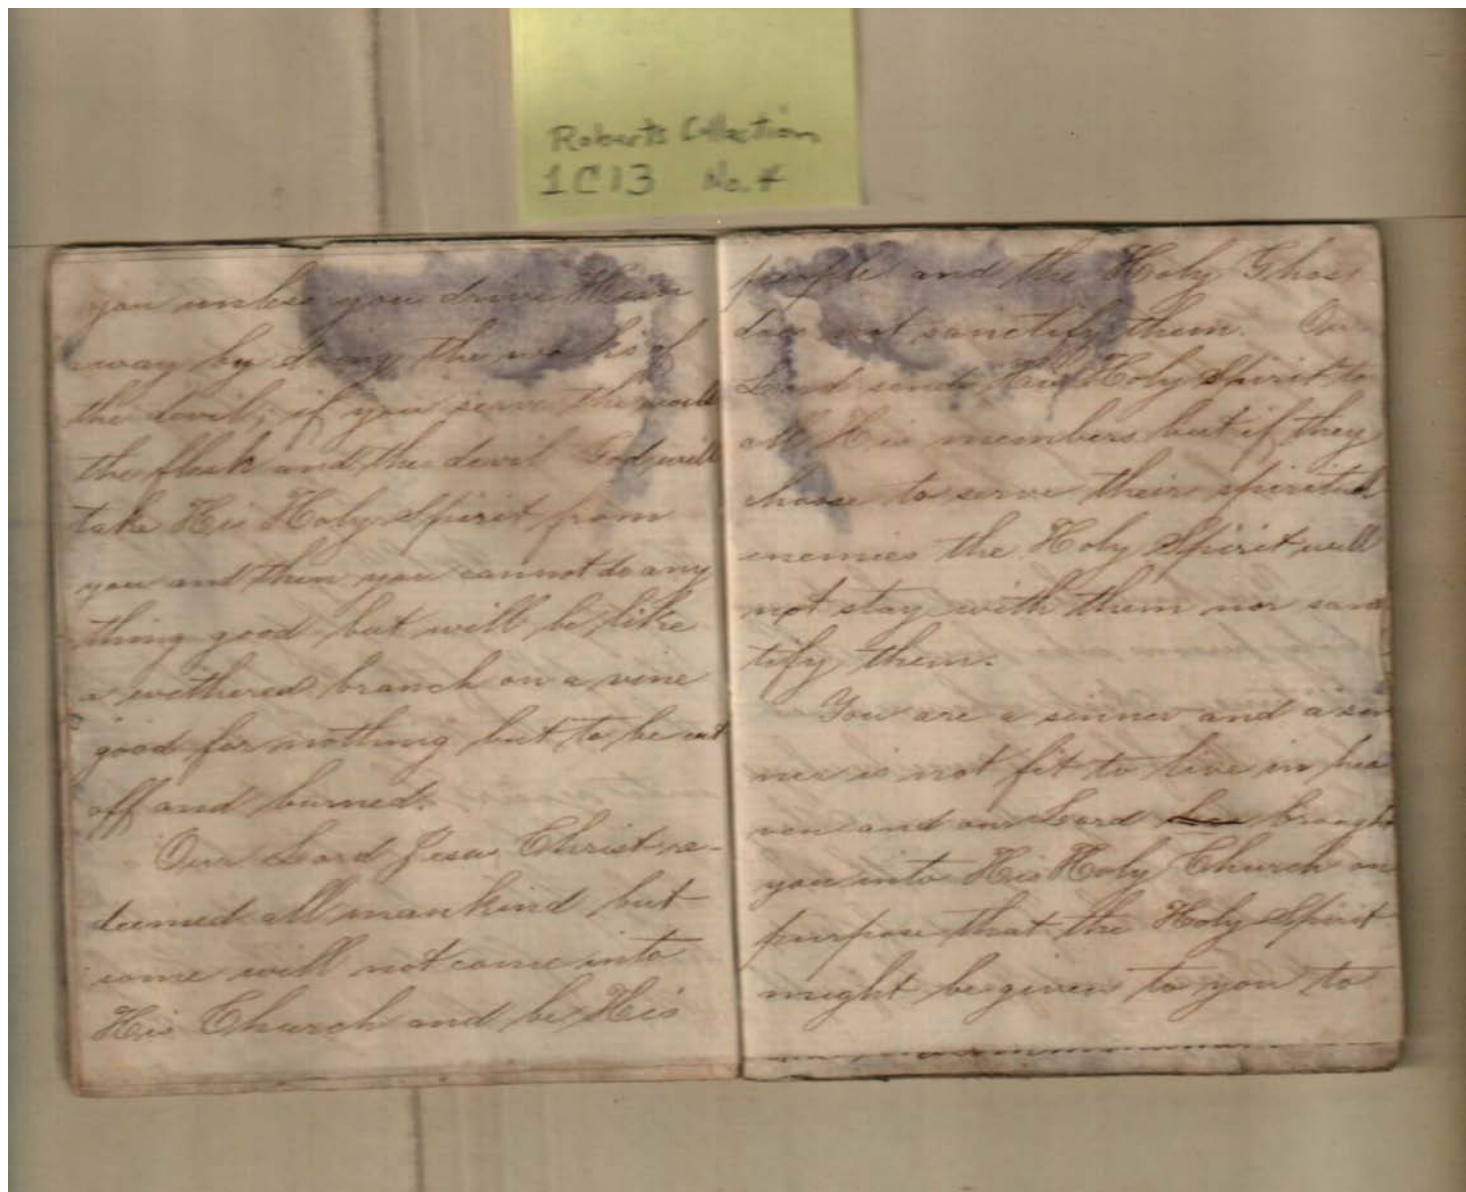 Roberts Collection
1C13 No. 4
you unless you drive Him
away by doing the works of
the devil; if you serve the world
the flesh and the devil God will
take His Holy Spirit from
you and then you cannot do any
thing good but will be like
a withered branch on a vine
good for nothing but to be cut
off and burned.
Our Lord Jesus Christ re-
deemed all mankind but
some will not come into
His Church and be His
people and the Holy Ghos
does not sanctify them. Our
Lord sends His Holy Spirit to
all His members but if they
choose to serve their spiritual
enemies the Holy Spirit will
not stay with them nor sanc
tify them.
You are a sinner and a sin
ner is not fit to live in hea
ven and our Lord brought
you into His Holy Church on
purpose that the Holy Spirit
might be given to you to